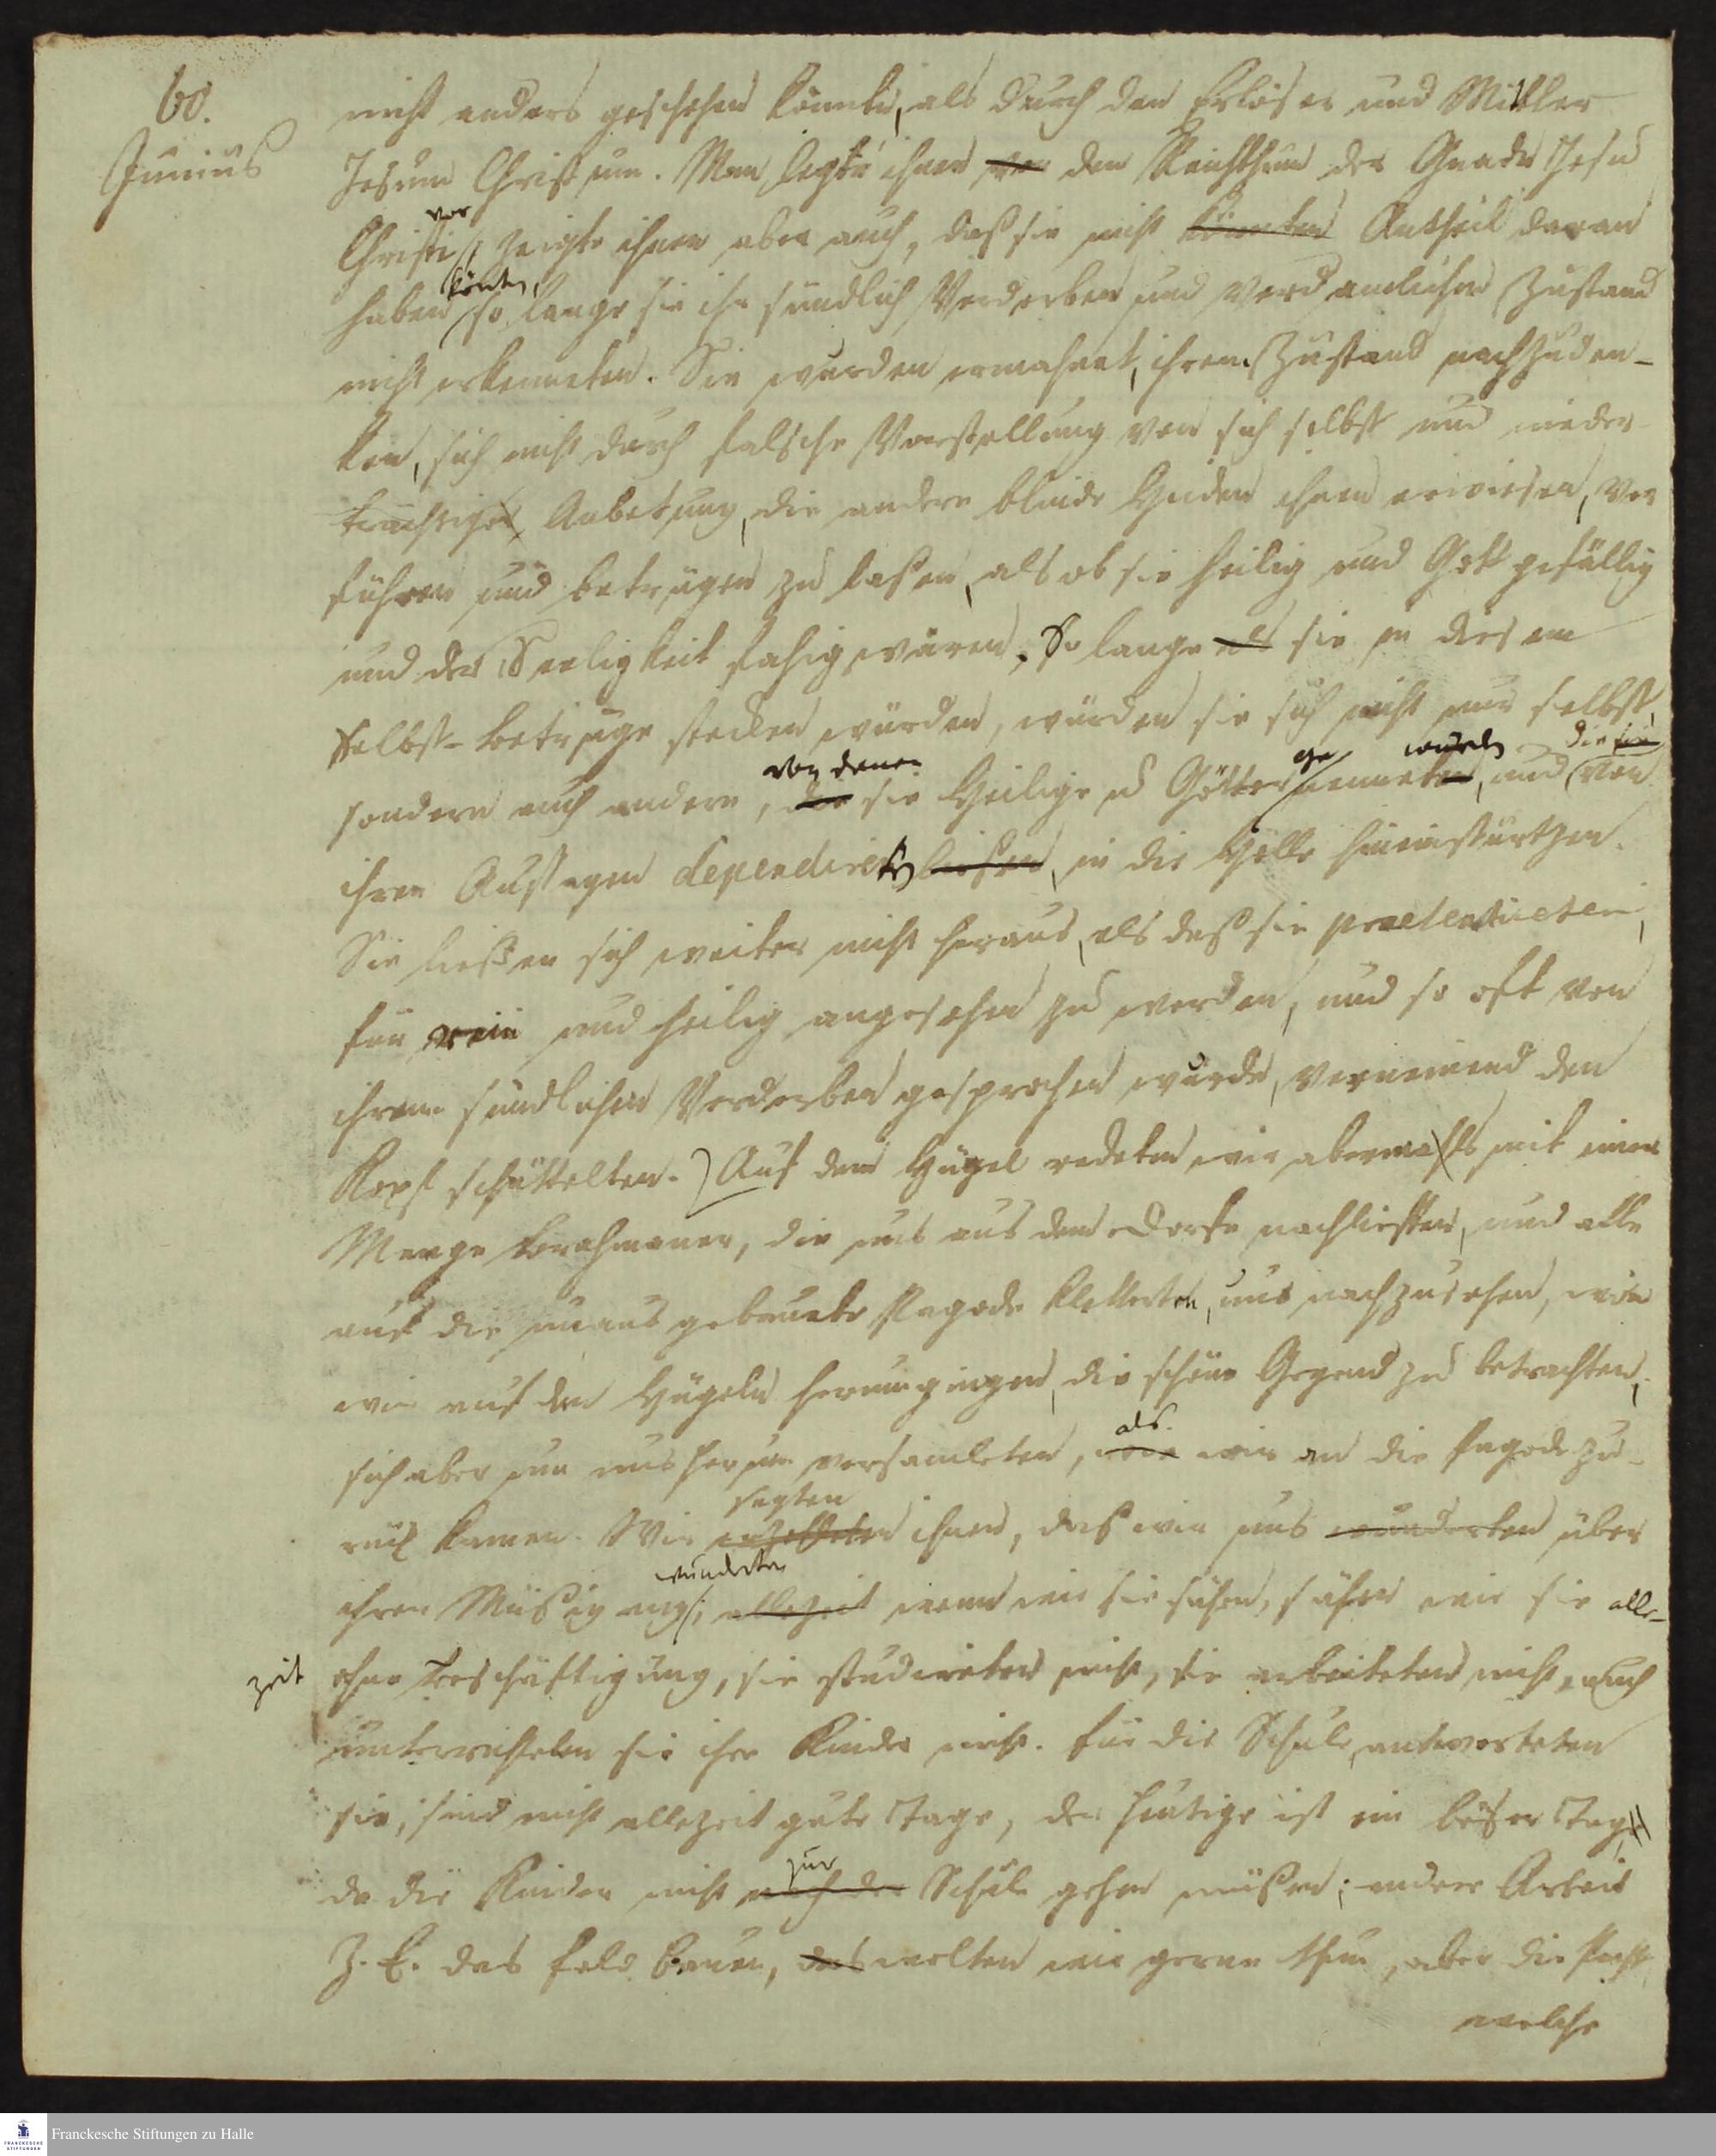 60.
Junius
nicht anders geschehen könnte, als durch den Erlöser und Mittler
Jesum Christum. Man legte ihnen vor den Reichthum der Gnade Jesu
vor
Christi, zeigte ihnen aber auch, daß sie nicht könnten Antheil daran
könten,
haben so lange sie ihr sündlich Verderben und verdamlichen Zustand
nicht erkenneten. Sie wurden ermahnet, ihrem Zustand nachzuden-
ken, sich nicht durch falsche Vorstellung von sich selbst und nieder
trächtige Anbetung, die andere blinde Heiden ihnen erwiesen, ver
führen und betrügen zu laßen, als ob sie heilig und Gott gefällig
und der Seeligkeit fähig wären. So lange als sie in diesem
Selbst-betruge stecken würden, würden sie sich nicht nur selbst,
von denen ge wurden die sie
sondern auch andere, die sie Heilige u Götter nenneten, und von
ihren Aussagen dependireten ließen, in die Hölle hineinstürtzen.
Sie ließen sich weiter nicht heraus, als daß sie praetendireten,
für rein und heilig angesehen zu werden, und so oft von
ihrem sündlichen Verderben gesprochen wurde, verneinend den
Kopf schüttelten. Auf dem Hügel redeten wir abermahls mit einer
Menge Brahmaner, die uns aus dem Dorfe nachliefen, und alle
auf die unausgebauete Pagode kletterten, uns nachzusehen, wie
wir auf den Hügeln herumgingen, die schöne Gegend zu betrachten,
als
sich aber um uns herum versamleten, wie wir an die Pagode zu-
sagten
rück kamen. Wir ihnen, daß wir uns wunderten über
wunderten
ihren Müßiggang; allezeit wenn wir sie sähen, sähen wir sie alle-
zeit ohne Beschäftigung, sie studireten nicht, sie arbeiteten nicht, auch
unterrichteten sie ihre Kinder nicht. Für die Schule, antworteten
sie, sind nicht allezeit gute Tage, der heutige ist ein böser Tag,
zur
da die Kinder nicht nach der Schule gehen müßen; andere Arbeit
Z. E. das Feld bauen, das wolten wir gerne thun, aber die Pacht
welche
Franckesche Stiftungen zu Halle
FRANCKESCHE STIFTUNGEN